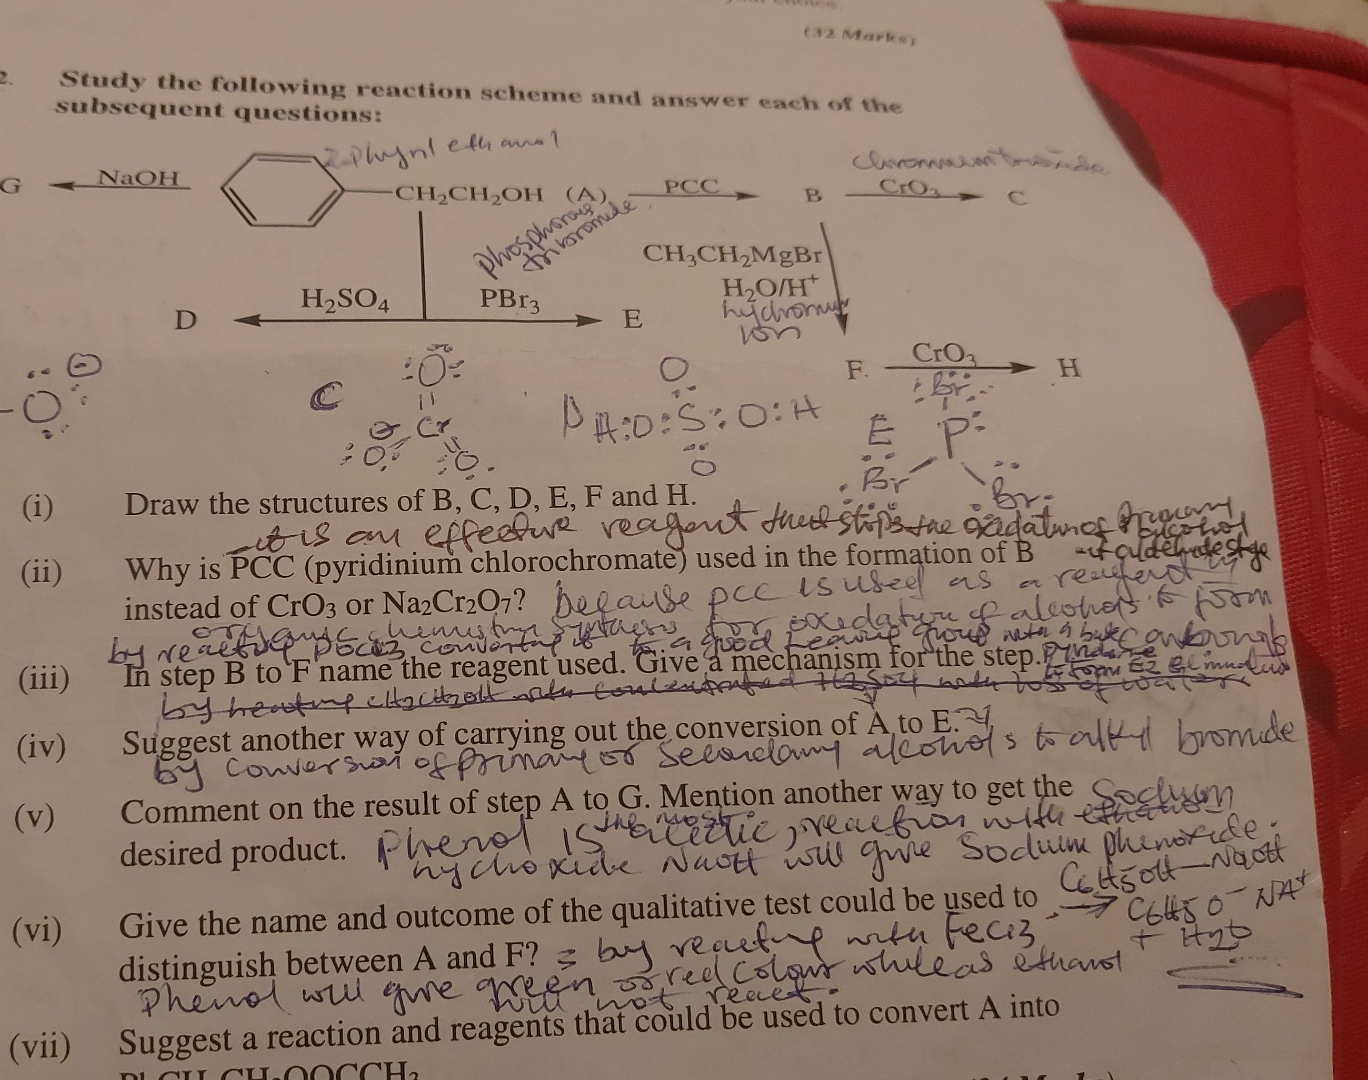 (32 Marks)
2. Study the following reaction scheme and answer each of the
subsequent questions:
2-Phynl ethanol
G NaOH CH₂CH₂OH (A) PCC B CrO₃ C
Phosphorous
tribromide
CH₃CH₂MgBr
H₂O/H⁺
ion
D H₂SO₄ PBr₃ E
F CrO₃ H
C
O
Cr
O O
O
H:O:S:O:H
O
E
Br
P
Br Br
(i) Draw the structures of B, C, D, E, F and H.
it is an effective reagent that stops the
(ii) Why is PCC (pyridinium chlorochromate) used in the formation of B
instead of CrO₃ or Na₂Cr₂O₇? because pcc is used as a reagent in
organic chemistry for oxidation of alcohols to form
by reacting to a good leaving group with a
(iii) In step B to F name the reagent used. Give a mechanism for the step.
by heating with concentrated H₂SO₄ with loss of water
(iv) Suggest another way of carrying out the conversion of A to E.
by conversion of primary or secondary alcohols to alkyl bromide
(v) Comment on the result of step A to G. Mention another way to get the
desired product. Phenol is the most acidic, reaction with Sodium
hydroxide NaOH will give Sodium phenoxide.
C₆H₅OH — NaOH
→ C₆H₅O⁻ NA⁺
+ H₂O
(vi) Give the name and outcome of the qualitative test could be used to
distinguish between A and F? = by reacting with Fecl3
Phenol will give green or red colour whileas ethanol
will not react.
(vii) Suggest a reaction and reagents that could be used to convert A into
PhCH₂CH₂OOCCH₃